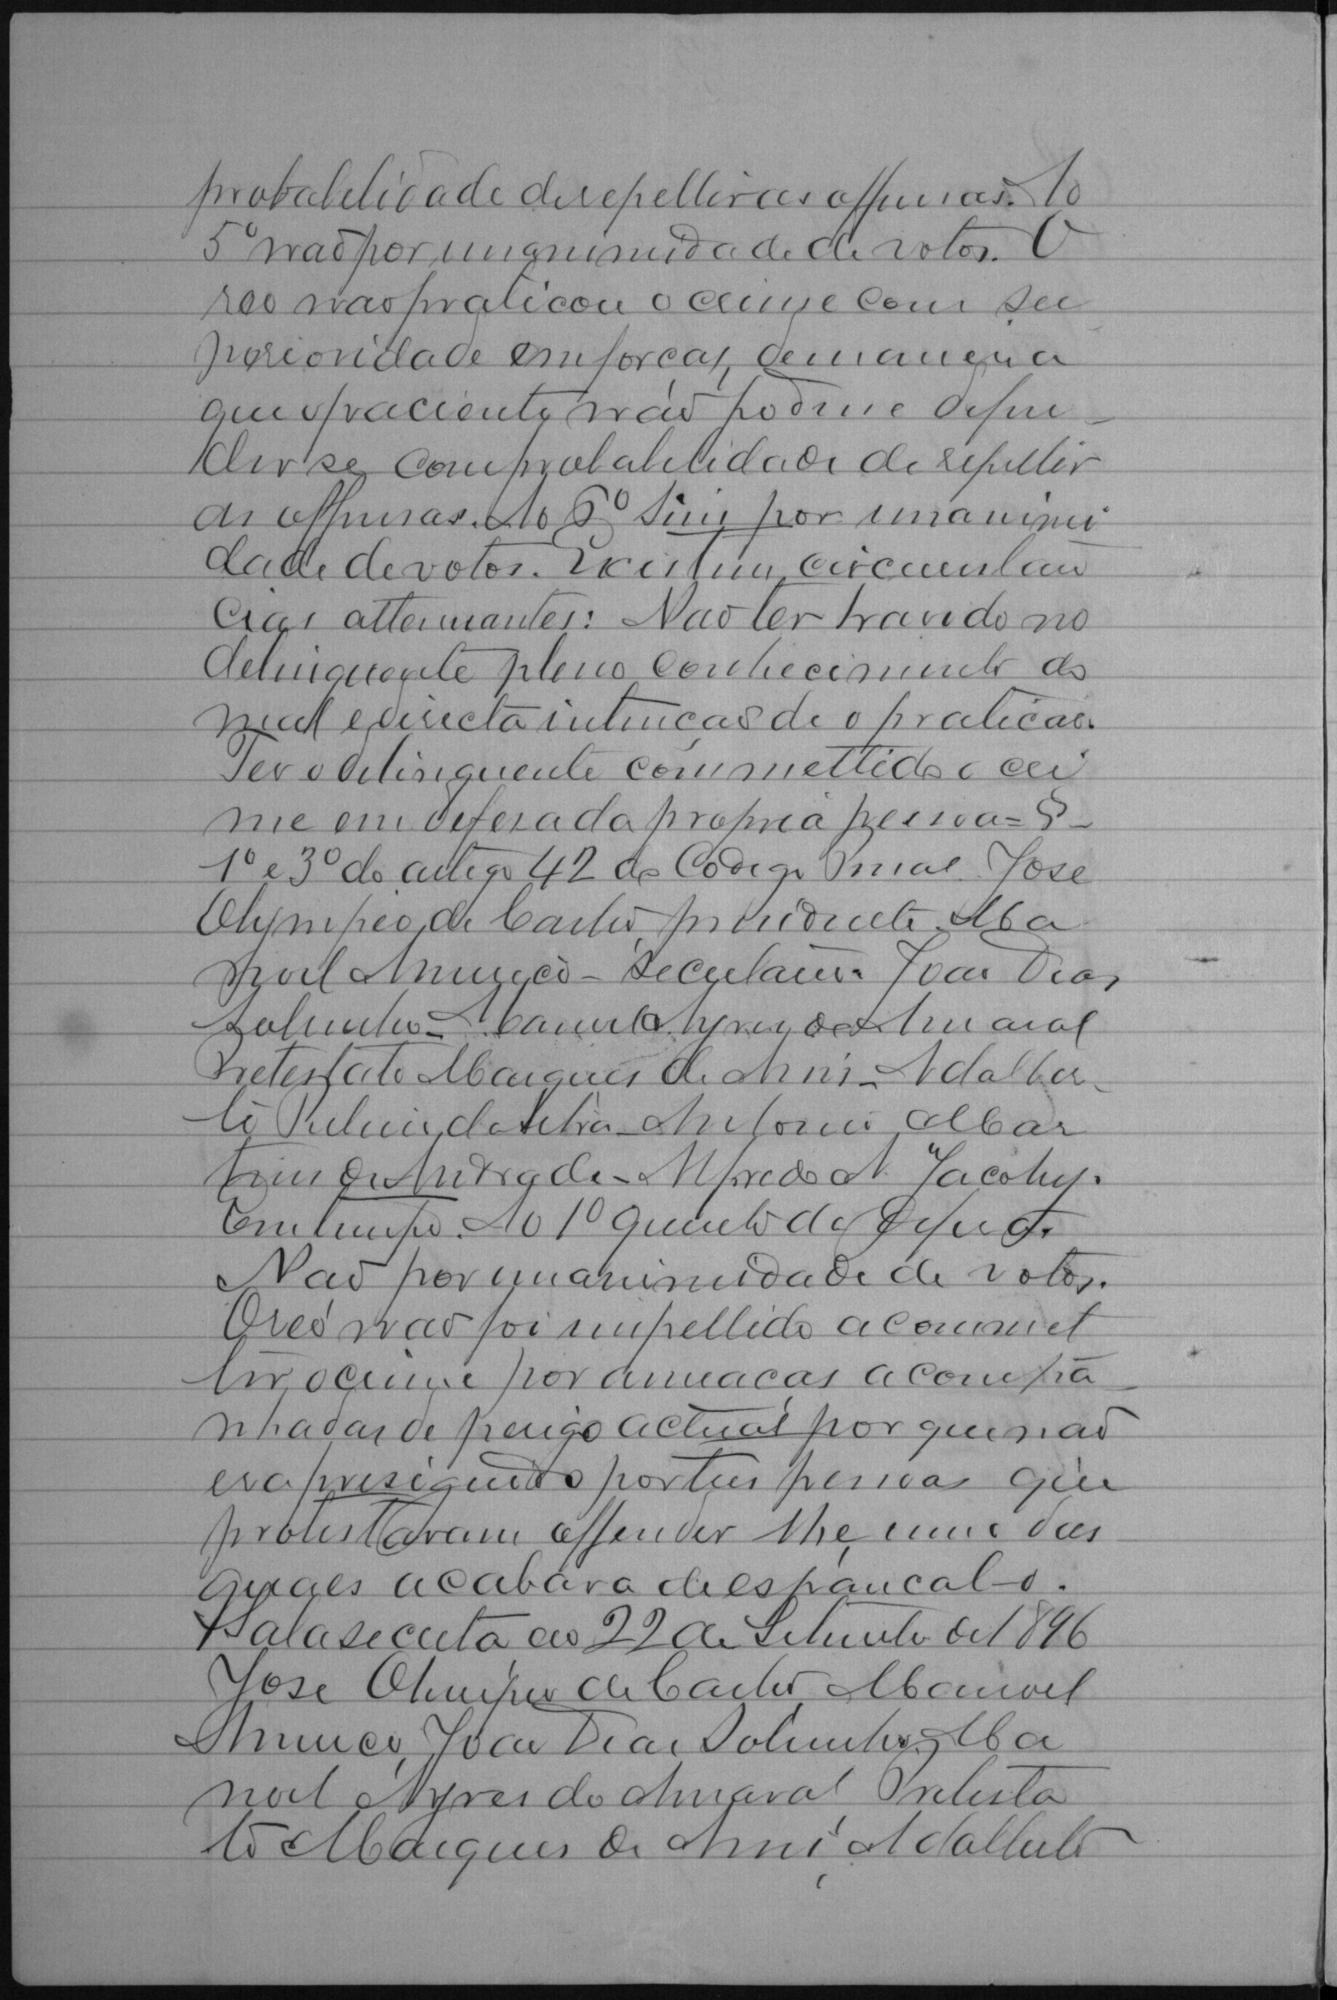 probabelidade de repellir as offensas. Ao
5º não por unanimidade de votos. O
reo não praticou o crime com su
perioridade em forças, de maneira
que o paciente não podesse defen-
der se com probabelidade de repellir
as offensas. Ao 6º Sim por unanimi
dade de votos. Existem circunstan
cias attenuantes: Não ter havido no
delinquente pleno conhecimento do
mal e directa intenção de o praticar.
Ter o delinquente commettido o cri
me em defesa da propria pessoa = §-
1º e 3º do artigo 42 do Codigo Penal. Jose
Olympio de Castro, presidente. Ma
noel Americo - Secretario. João Dias
Sobrinho - Manoel Ayres do Amaral
Pretestato Marques de Assis - Adalber-
to Silva - Antonio Mar
tins de Andrade - Alfredo A. Jacoby.
Em tempo. Ao 1º quesito da defesa.
Não por unanimidade de votos.
O reo não foi impellido a commet
ter o crime por ameaças acompa-
nhadas de perigo actual por que não
era presiguido por tres pessoas que
protestavam offender lhe, uma das
quaes acabara de espancal-o.
Sala secreta ao 22 de Setembro de 1896
Jose Olimpio de Castro, Manoel
Americo, João Dias Sobrinho, Ma
noel Ayres do Amaral Pretesta
to Marques de Assis, Adalberto